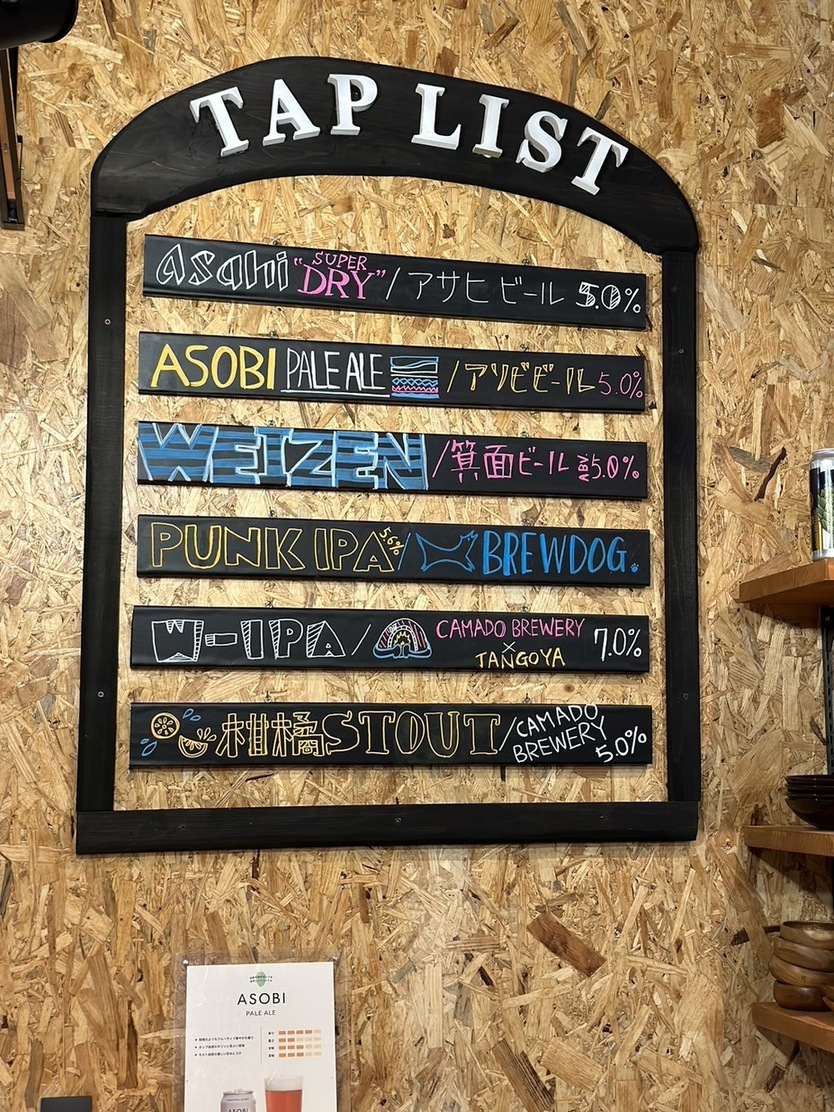 TAP LIST
Asahi "SUPER DRY" / アサヒビール 5.0%
ASOBI PALE ALE / アソビビール 5.0%
WEIZEN / 箕面ビール ABV 5.0%
PUNK IPA 5.6% / BREWDOG
W-IPA / CAMADO BREWERY × TANGOYA 7.0%
柑橘STOUT / CAMADO BREWERY 5.0%
ASOBI
PALE ALE
ASOBI